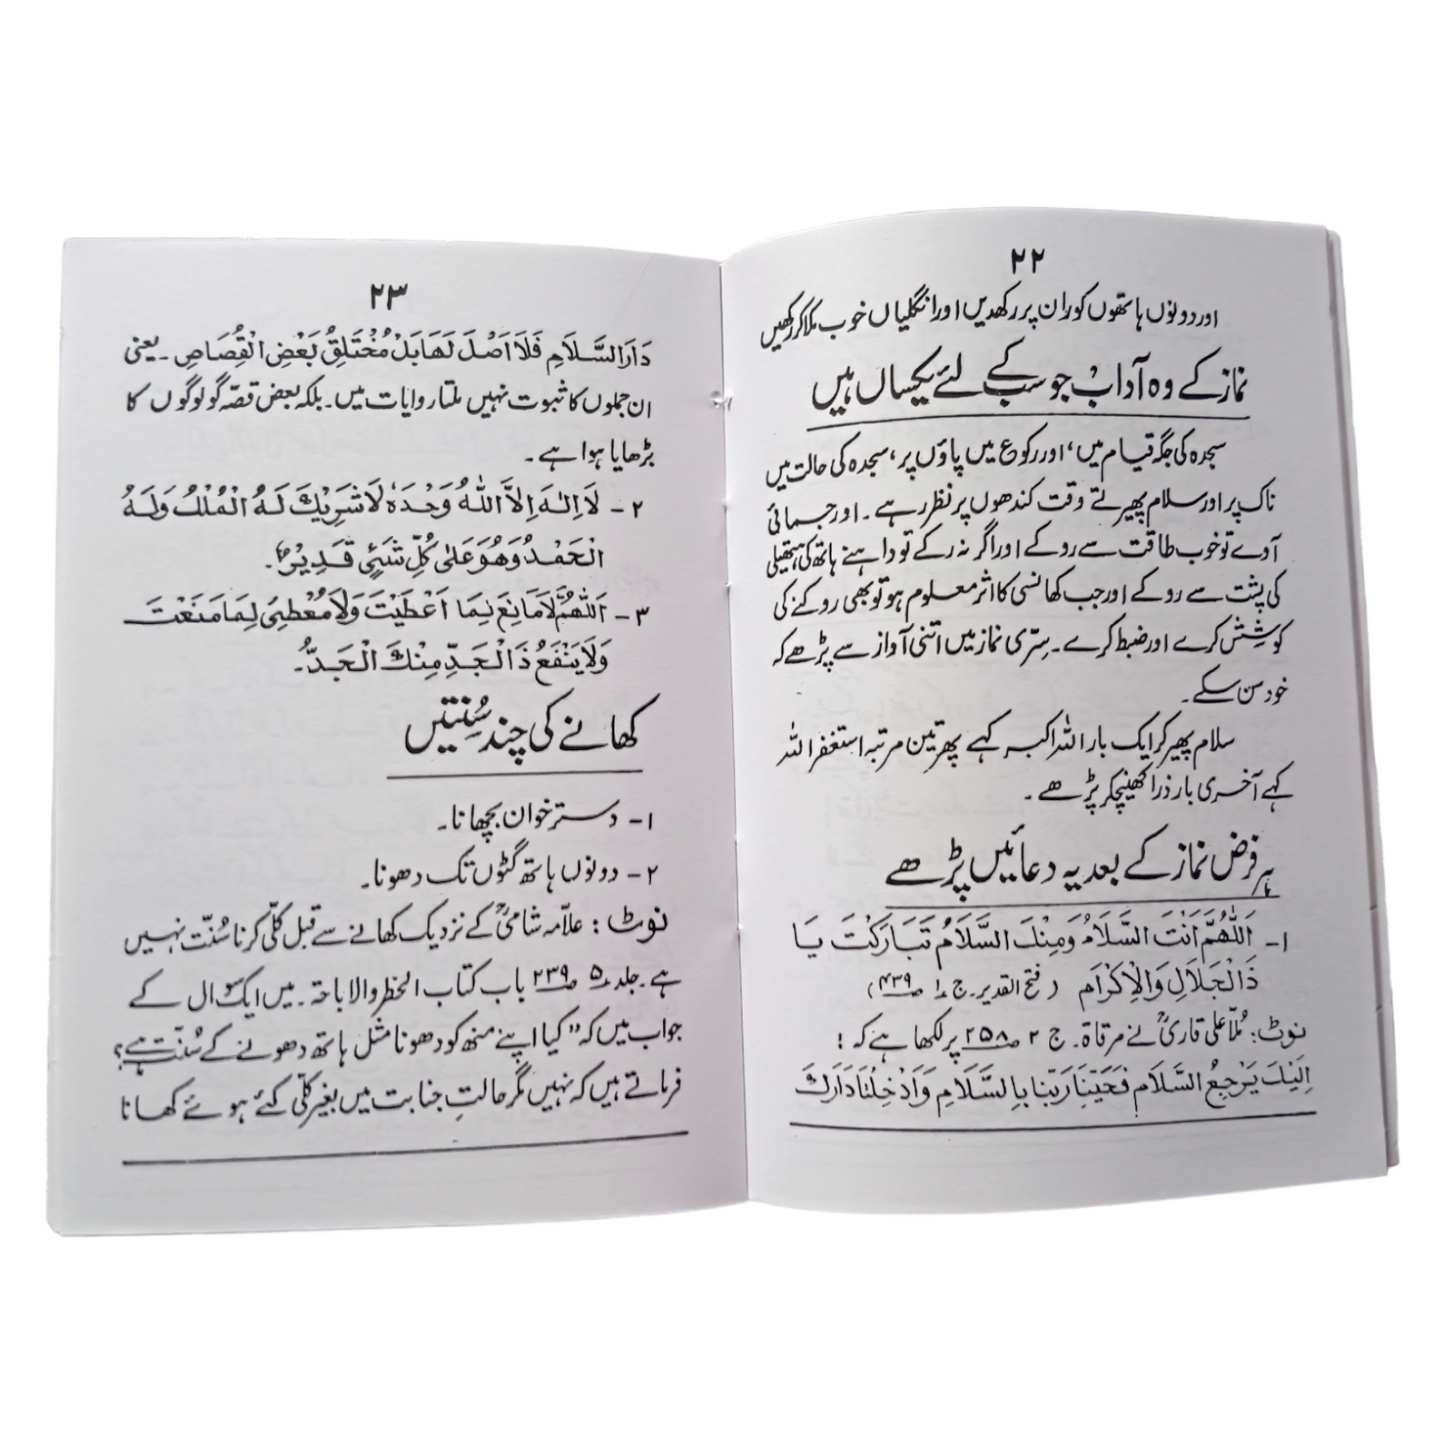 ۲۲
اور دونوں ہاتھوں کو ران پر رکھدیں اور انگلیاں خوب ملا کر رکھیں
نماز کے وہ آداب جو سب کے لئے یکساں ہیں
سجدہ کی جگہ قیام میں، اور رکوع میں پاؤں پر، سجدہ کی حالت میں
ناک پر اور سلام پھیرتے وقت کندھوں پر نظر رہے۔ اور جمائی
آوے تو خوب طاقت سے روکے اور اگر نہ رکے تو داہنے ہاتھ کی ہتھیلی
کی پشت سے روکے اور جب کھانسی کا اثر معلوم ہو تو بھی روکنے کی
کوشش کرے اور ضبط کرے۔ سِرّی نماز میں اتنی آواز سے پڑھے کہ
خود سن سکے۔
سلام پھیر کر ایک بار اللہ اکبر کہے پھر تین مرتبہ استغفر اللہ
کہے آخری بار ذرا کھینچکر پڑھے۔
ہر فرض نماز کے بعد یہ دعائیں پڑھے
۱- اَللّٰهُمَّ اَنْتَ السَّلَامُ وَمِنْكَ السَّلَامُ تَبَارَكْتَ يَا
ذَالْجَلَالِ وَالْاِكْرَامِ (فتح القدیر۔ ج ۱ ص ۴۳۹)
نوٹ: مُلّا علی قاریؒ نے مرقاۃ۔ ج ۲ ص ۲۵۸ پر لکھا ہے کہ:
اِلَيْكَ يَرْجِعُ السَّلَام فَحَيِّنَا رَبَّنَا بِالسَّلَامِ وَاَدْخِلْنَا دَارَكَ
۲۳
دَارَ السَّلَامِ فَلَا اَصْلَ لَهَا بَلْ مُخْتَلِقُ بَعْضِ الْقُصَاصِ۔ یعنی
ان جملوں کا ثبوت نہیں ملتا روایات میں۔ بلکہ بعض قصّہ گو لوگوں کا
بڑھایا ہوا ہے۔
۲- لَا اِلٰهَ اِلَّا اللّٰهُ وَحْدَهٗ لَا شَرِيْكَ لَهُ الْمُلْكُ وَلَهُ
الْحَمْدُ وَهُوَ عَلٰى كُلِّ شَيْئٍ قَدِيْرٌ۔
۳- اَللّٰهُمَّ لَا مَانِعَ لِمَا اَعْطَيْتَ وَلَا مُعْطِيَ لِمَا مَنَعْتَ
وَلَا يَنْفَعُ ذَالْجَدِّ مِنْكَ الْجَدُّ۔
کھانے کی چند سُنتیں
۱- دسترخوان بچھانا۔
۲- دونوں ہاتھ گٹوں تک دھونا۔
نوٹ: علّامہ شامیؒ کے نزدیک کھانے سے قبل کلّی کرنا سُنّت نہیں
ہے۔ جلد ۵ ص ۲۳۹ باب کتاب الحظر والاباحۃ۔ میں ایک سوال کے
جواب میں کہ "کیا اپنے منھ کو دھونا مثل ہاتھ دھونے کے سُنّت ہے؟
فرماتے ہیں کہ نہیں مگر حالتِ جنابت میں بغیر کلّی کئے ہوئے کھانا